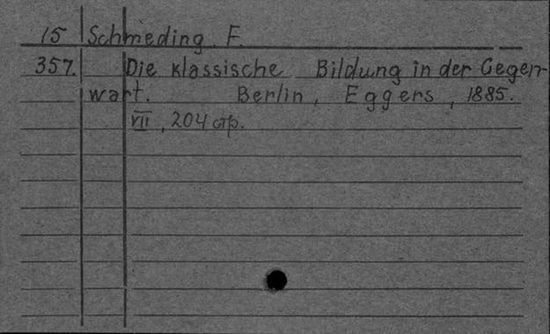 15 Schmeding, F.
357. Die klassische Bildung in der Gegen-
wart. Berlin, Eggers, 1885.
VII, 204 стр.